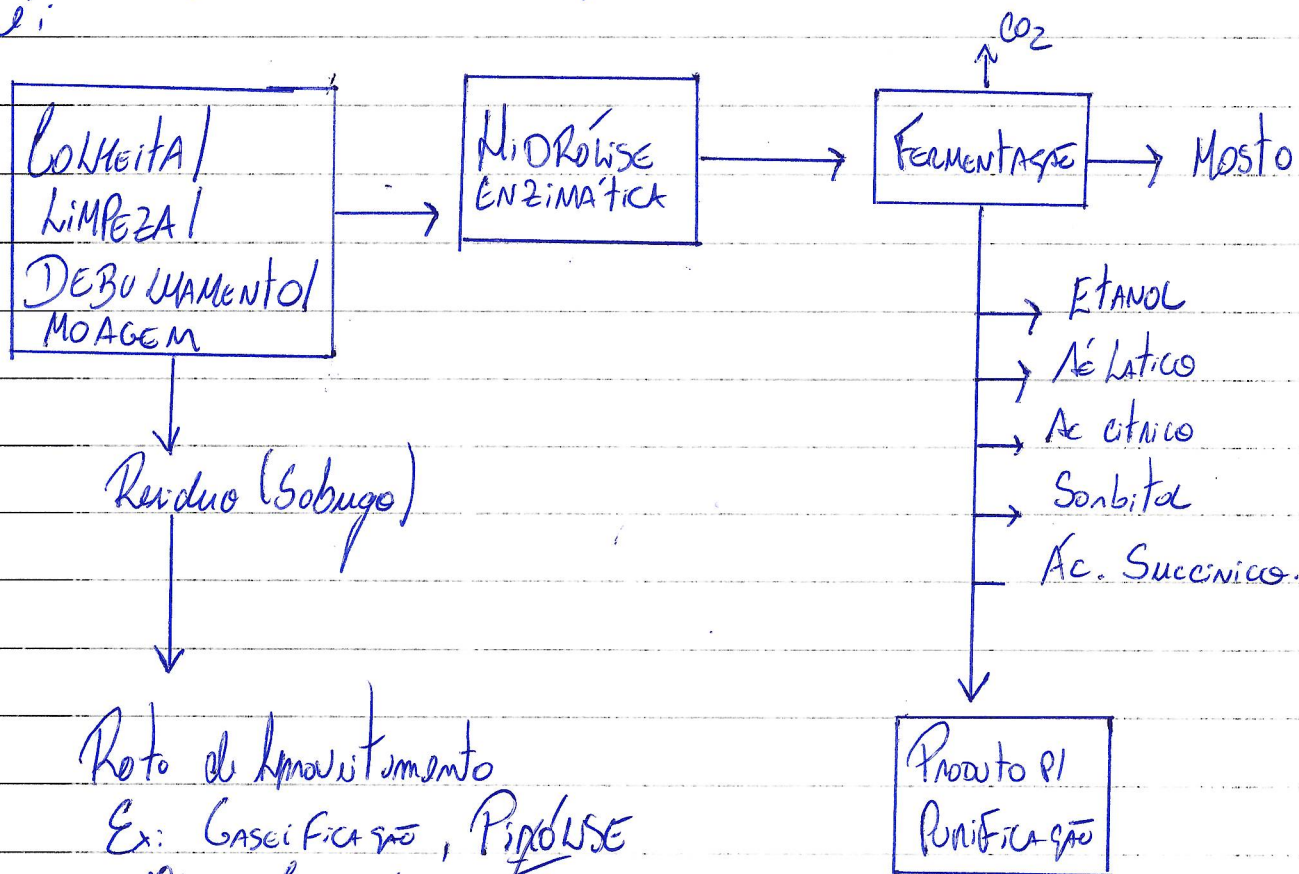 é:
CO2
COLHEITA/
LIMPEZA/
DEBULHAMENTO/
MOAGEM
HIDRÓLISE
ENZIMÁTICA
FERMENTAÇÃO
MOSTO
ETANOL
Ác LÁTICO
Ac CÍTRICO
Sorbitol
Ác. SUCCÍNICO.
Resíduo (Sabugo)
Rota de Aproveitamento
Ex: GASEIFICAÇÃO, PIRÓLISE
PRODUTO P/
PURIFICAÇÃO